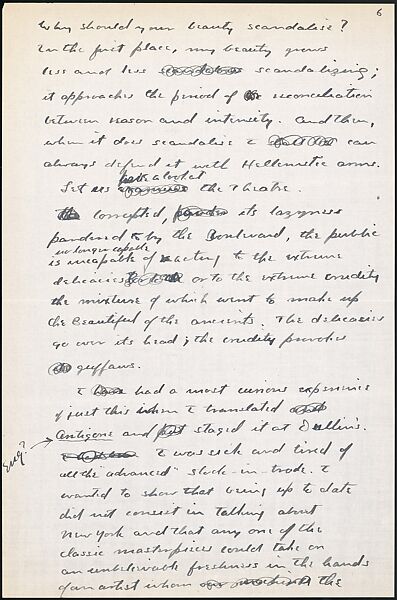 6
Why should your beauty scandalize?
In the first place, my beauty grows
less and less scandalizing;
it approaches the period of reconciliation
between reason and intensity. And then,
when it does scandalize I can
always defend it with Hellenistic arms.
Let us look at the Theatre.
Corrupted, its lazyness
pandered to by the Boulevard, the public
no longer capable
is incapable of reacting to the extreme
delicacies or to the extreme crudity
the mixture of which went to make up
the beautiful of the ancients. The delicacies
go over its head; the crudity provokes
guffaws.
I had a most curious experience
of just this when I translated
Antigone and staged it at Dullin's.
Eng?
I was sick and tired of
all the "advanced" stock-in-trade. I
wanted to show that being up to date
did not consist in talking about
New York and that any one of the
classic masterpieces could take on
an unbelievable freshness in the hands
of an artist whom the